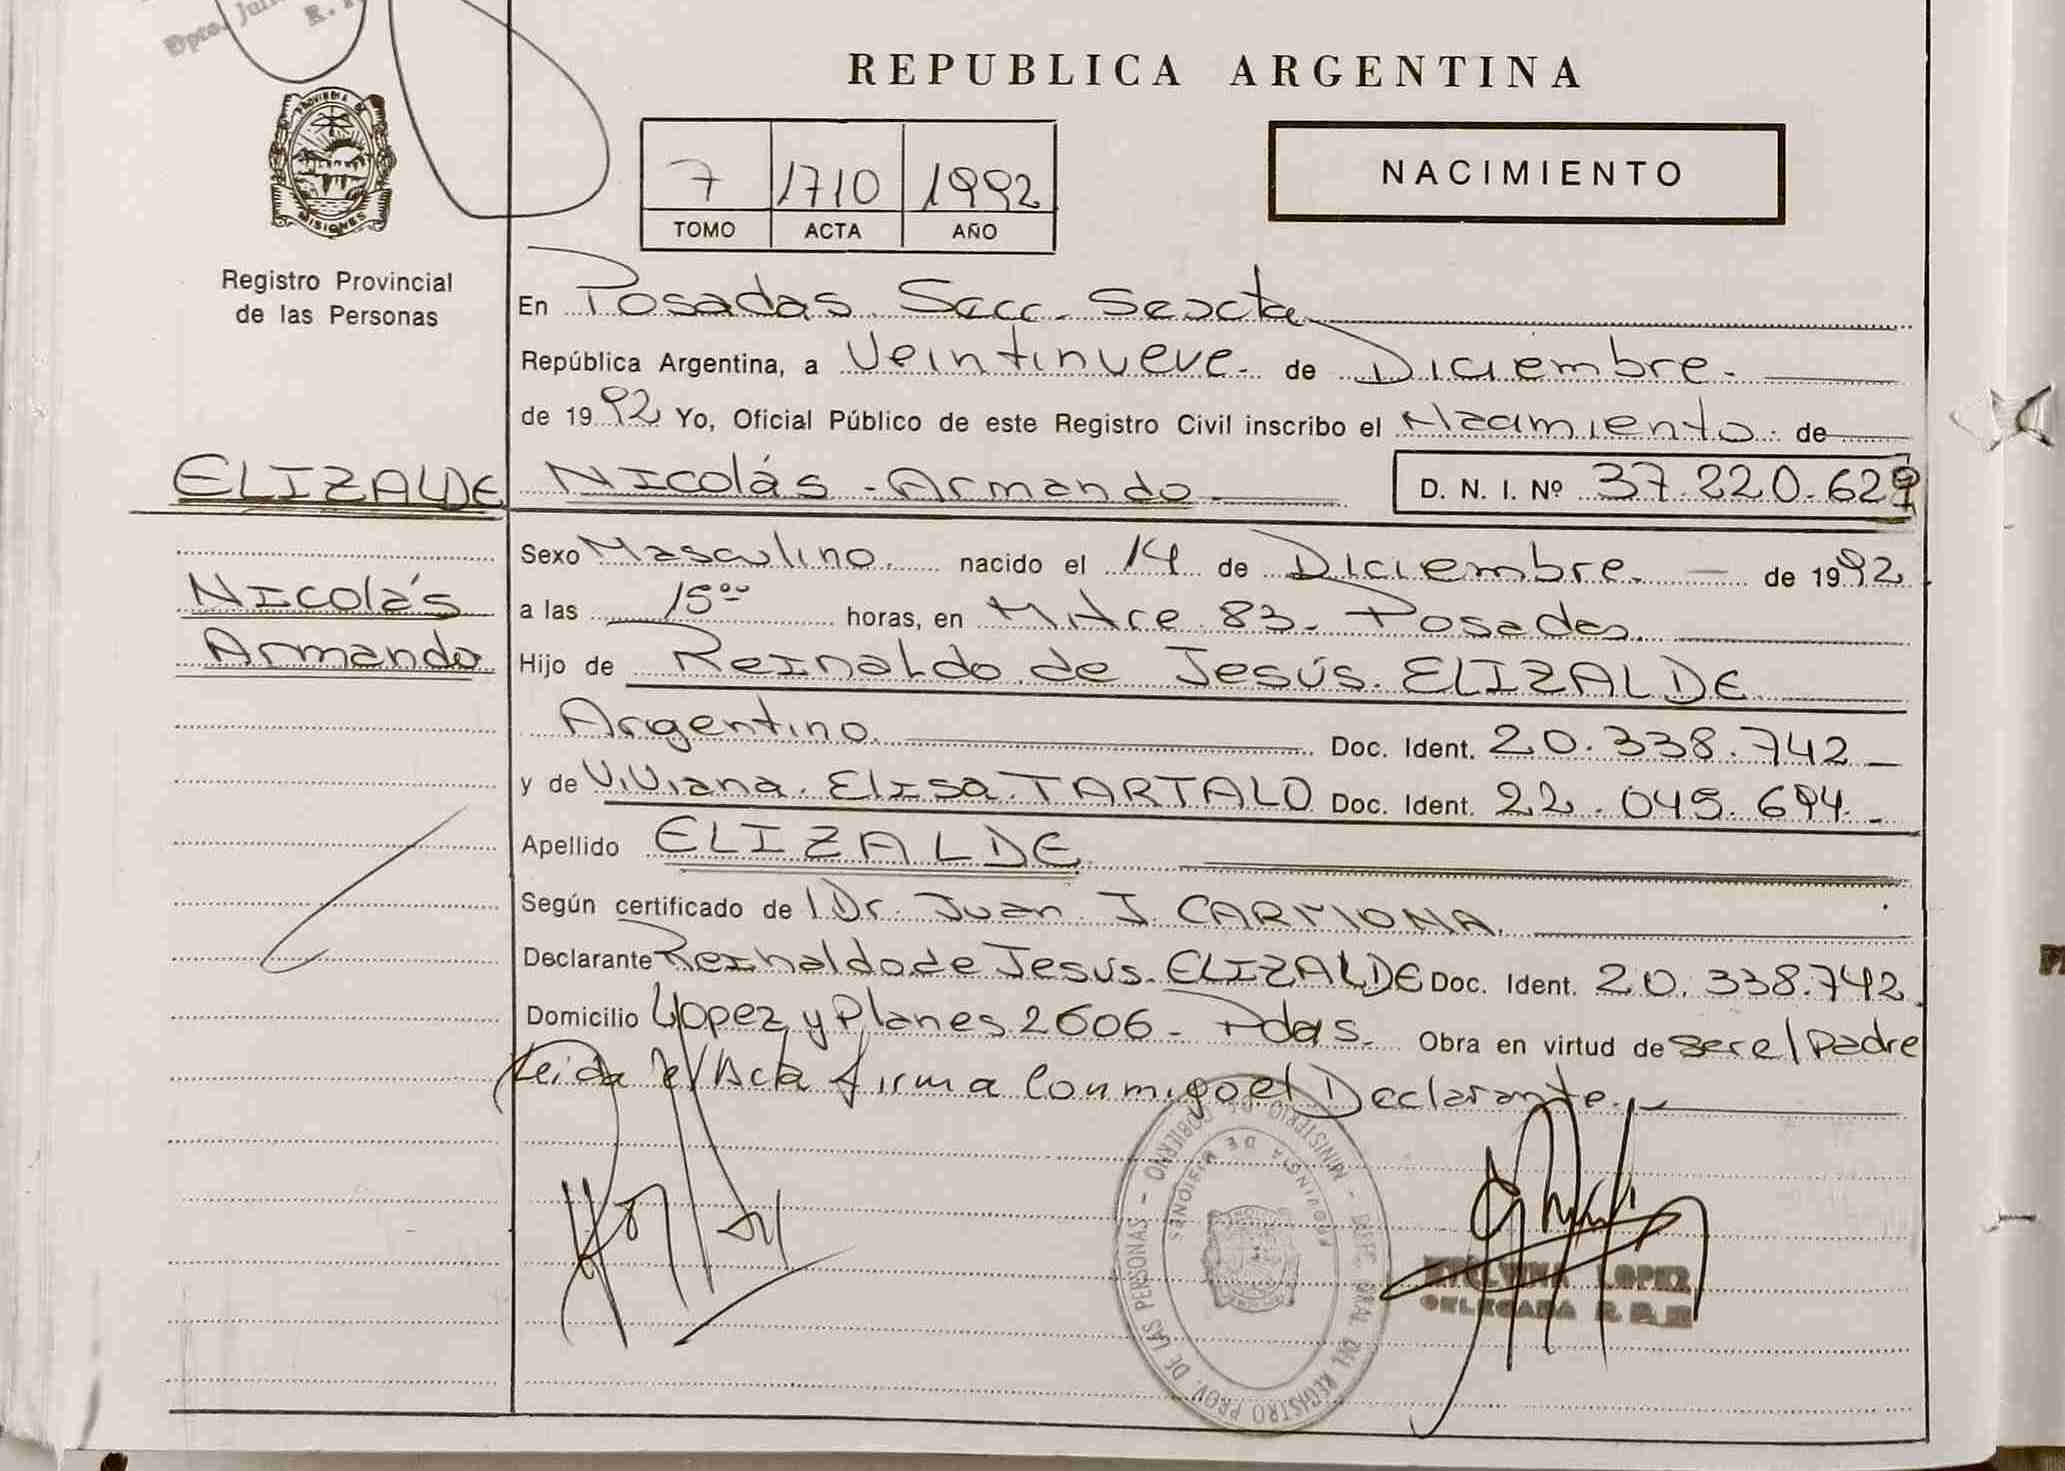 Dpto.
REPUBLICA ARGENTINA
PROVINCIA DE
MISIONES
7 1710 1992
TOMO ACTA AÑO
NACIMIENTO
Registro Provincial
de las Personas
En Posadas Secc. Sexta
República Argentina, a Veintinueve de Diciembre
de 1992 Yo, Oficial Público de este Registro Civil inscribo el Nacimiento de
ELIZALDE Nicolás Armando D. N. I. Nº 37.220.629
Sexo Masculino nacido el 14 de Diciembre de 1992
Nicolás
a las 15 horas, en Mitre 83 Posadas
Armando
Hijo de Reinaldo de Jesús ELIZALDE
Argentino Doc. Ident. 20.338.742
y de Viviana Elisa TARTALO Doc. Ident. 22.045.694
Apellido ELIZALDE
Según certificado de Dr. Juan J. CARMONA
Declarante Reinaldo de Jesús ELIZALDE Doc. Ident. 20.338.742
Domicilio López y Planes 2606 - Pdas. Obra en virtud de ser el Padre
Leida el Acta firma conmigo el Declarante
MINISTERIO DE GOBIERNO - DIRC. GRAL. DEL REGISTRO PROV. DE LAS PERSONAS -
PROVINCIA DE MISIONES
LOPEZ
DELEGADA